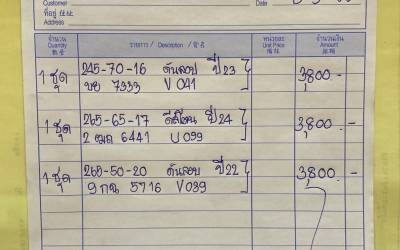 Customer
ที่อยู่
Address
จำนวน รายการ / Description / 货名 หน่วยละ จำนวนเงิน
Quantity Unit Price Amount
数量
1 ชุด 245-70-16 ดันลอป ปี23 3,800.-
7333 V041
1 ชุด 265-65-17 ปี24 3,800.-
2 ฒฌ 6441 U099
1 ชุด 265-50-20 ดันลอป ปี22 3,800.-
9 กฉ 5716 V039